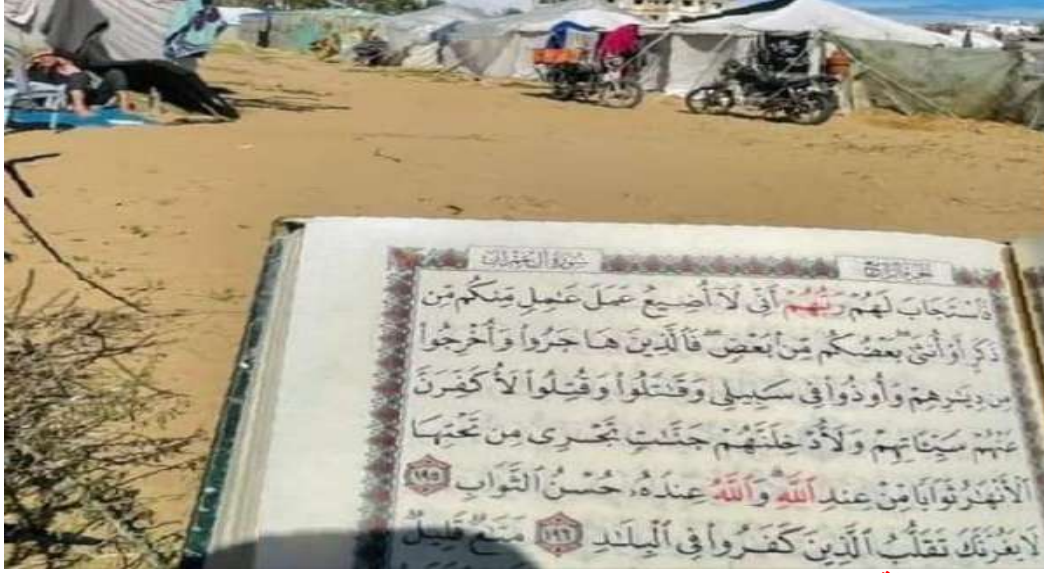 سورة آل عمران
الجزء الرابع
فَٱسْتَجَابَ لَهُمْ رَبُّهُمْ أَنِّى لَآ أُضِيعُ عَمَلَ عَٰمِلٍ مِّنكُم مِّن
ذَكَرٍ أَوْ أُنثَىٰ ۖ بَعْضُكُم مِّنۢ بَعْضٍ ۖ فَٱلَّذِينَ هَاجَرُوا۟ وَأُخْرِجُوا۟
مِن دِيَٰرِهِمْ وَأُوذُوا۟ فِى سَبِيلِى وَقَٰتَلُوا۟ وَقُتِلُوا۟ لَأُكَفِّرَنَّ
عَنْهُمْ سَيِّـَٔاتِهِمْ وَلَأُدْخِلَنَّهُمْ جَنَّٰتٍ تَجْرِى مِن تَحْتِهَا
ٱلْأَنْهَٰرُ ثَوَابًا مِّنْ عِندِ ٱللَّهِ ۗ وَٱللَّهُ عِندَهُۥ حُسْنُ ٱلثَّوَابِ ١٩٥
لَا يَغُرَّنَّكَ تَقَلُّبُ ٱلَّذِينَ كَفَرُوا۟ فِى ٱلْبِلَٰدِ ١٩٦ مَتَٰعٌ قَلِيلٌ